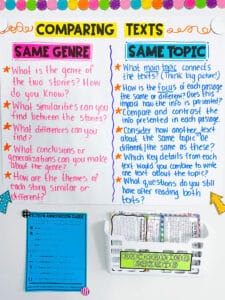 COMPARING TEXTS
SAME GENRE
What is the genre of
the two stories? How
do you know?
What similarities can you
find between the stories?
What differences can you
find?
What conclusions or
generalizations can you make
about the genre?
How are the themes of
each story similar or
different?
SAME TOPIC
What main topic connects
the texts? (Think big picture!)
How is the focus of each passage
the same or different? Does this
impact how the info is presented?
Compare and contrast the
info presented in each passage.
Consider how another text
about the same topic
the same as these?
Which key details from each
text would you combine to write
about the topic?
What questions do you still
have after reading both
texts?
FICTION ANNOTATION GUIDE